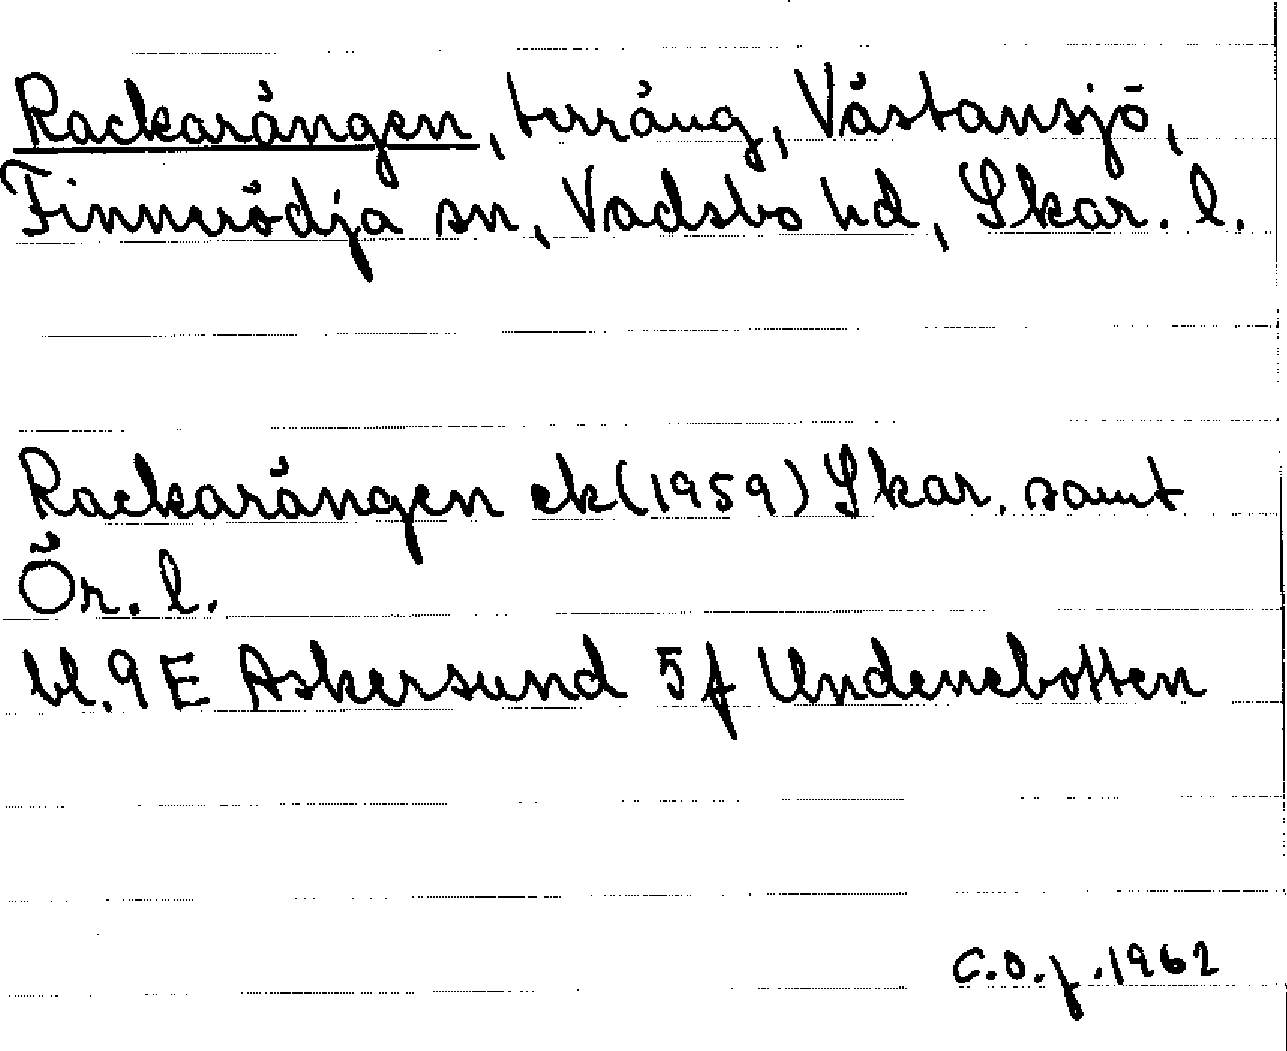 Rackarängen, terräng, Västansjö,
Finnerödja sn, Vadsbo hd, Skar. l.
Rackarängen ek (1959) Skar. samt
Ör. l.
bl. 9E Askersund 5f Undenebotten
C.O.f. 1962